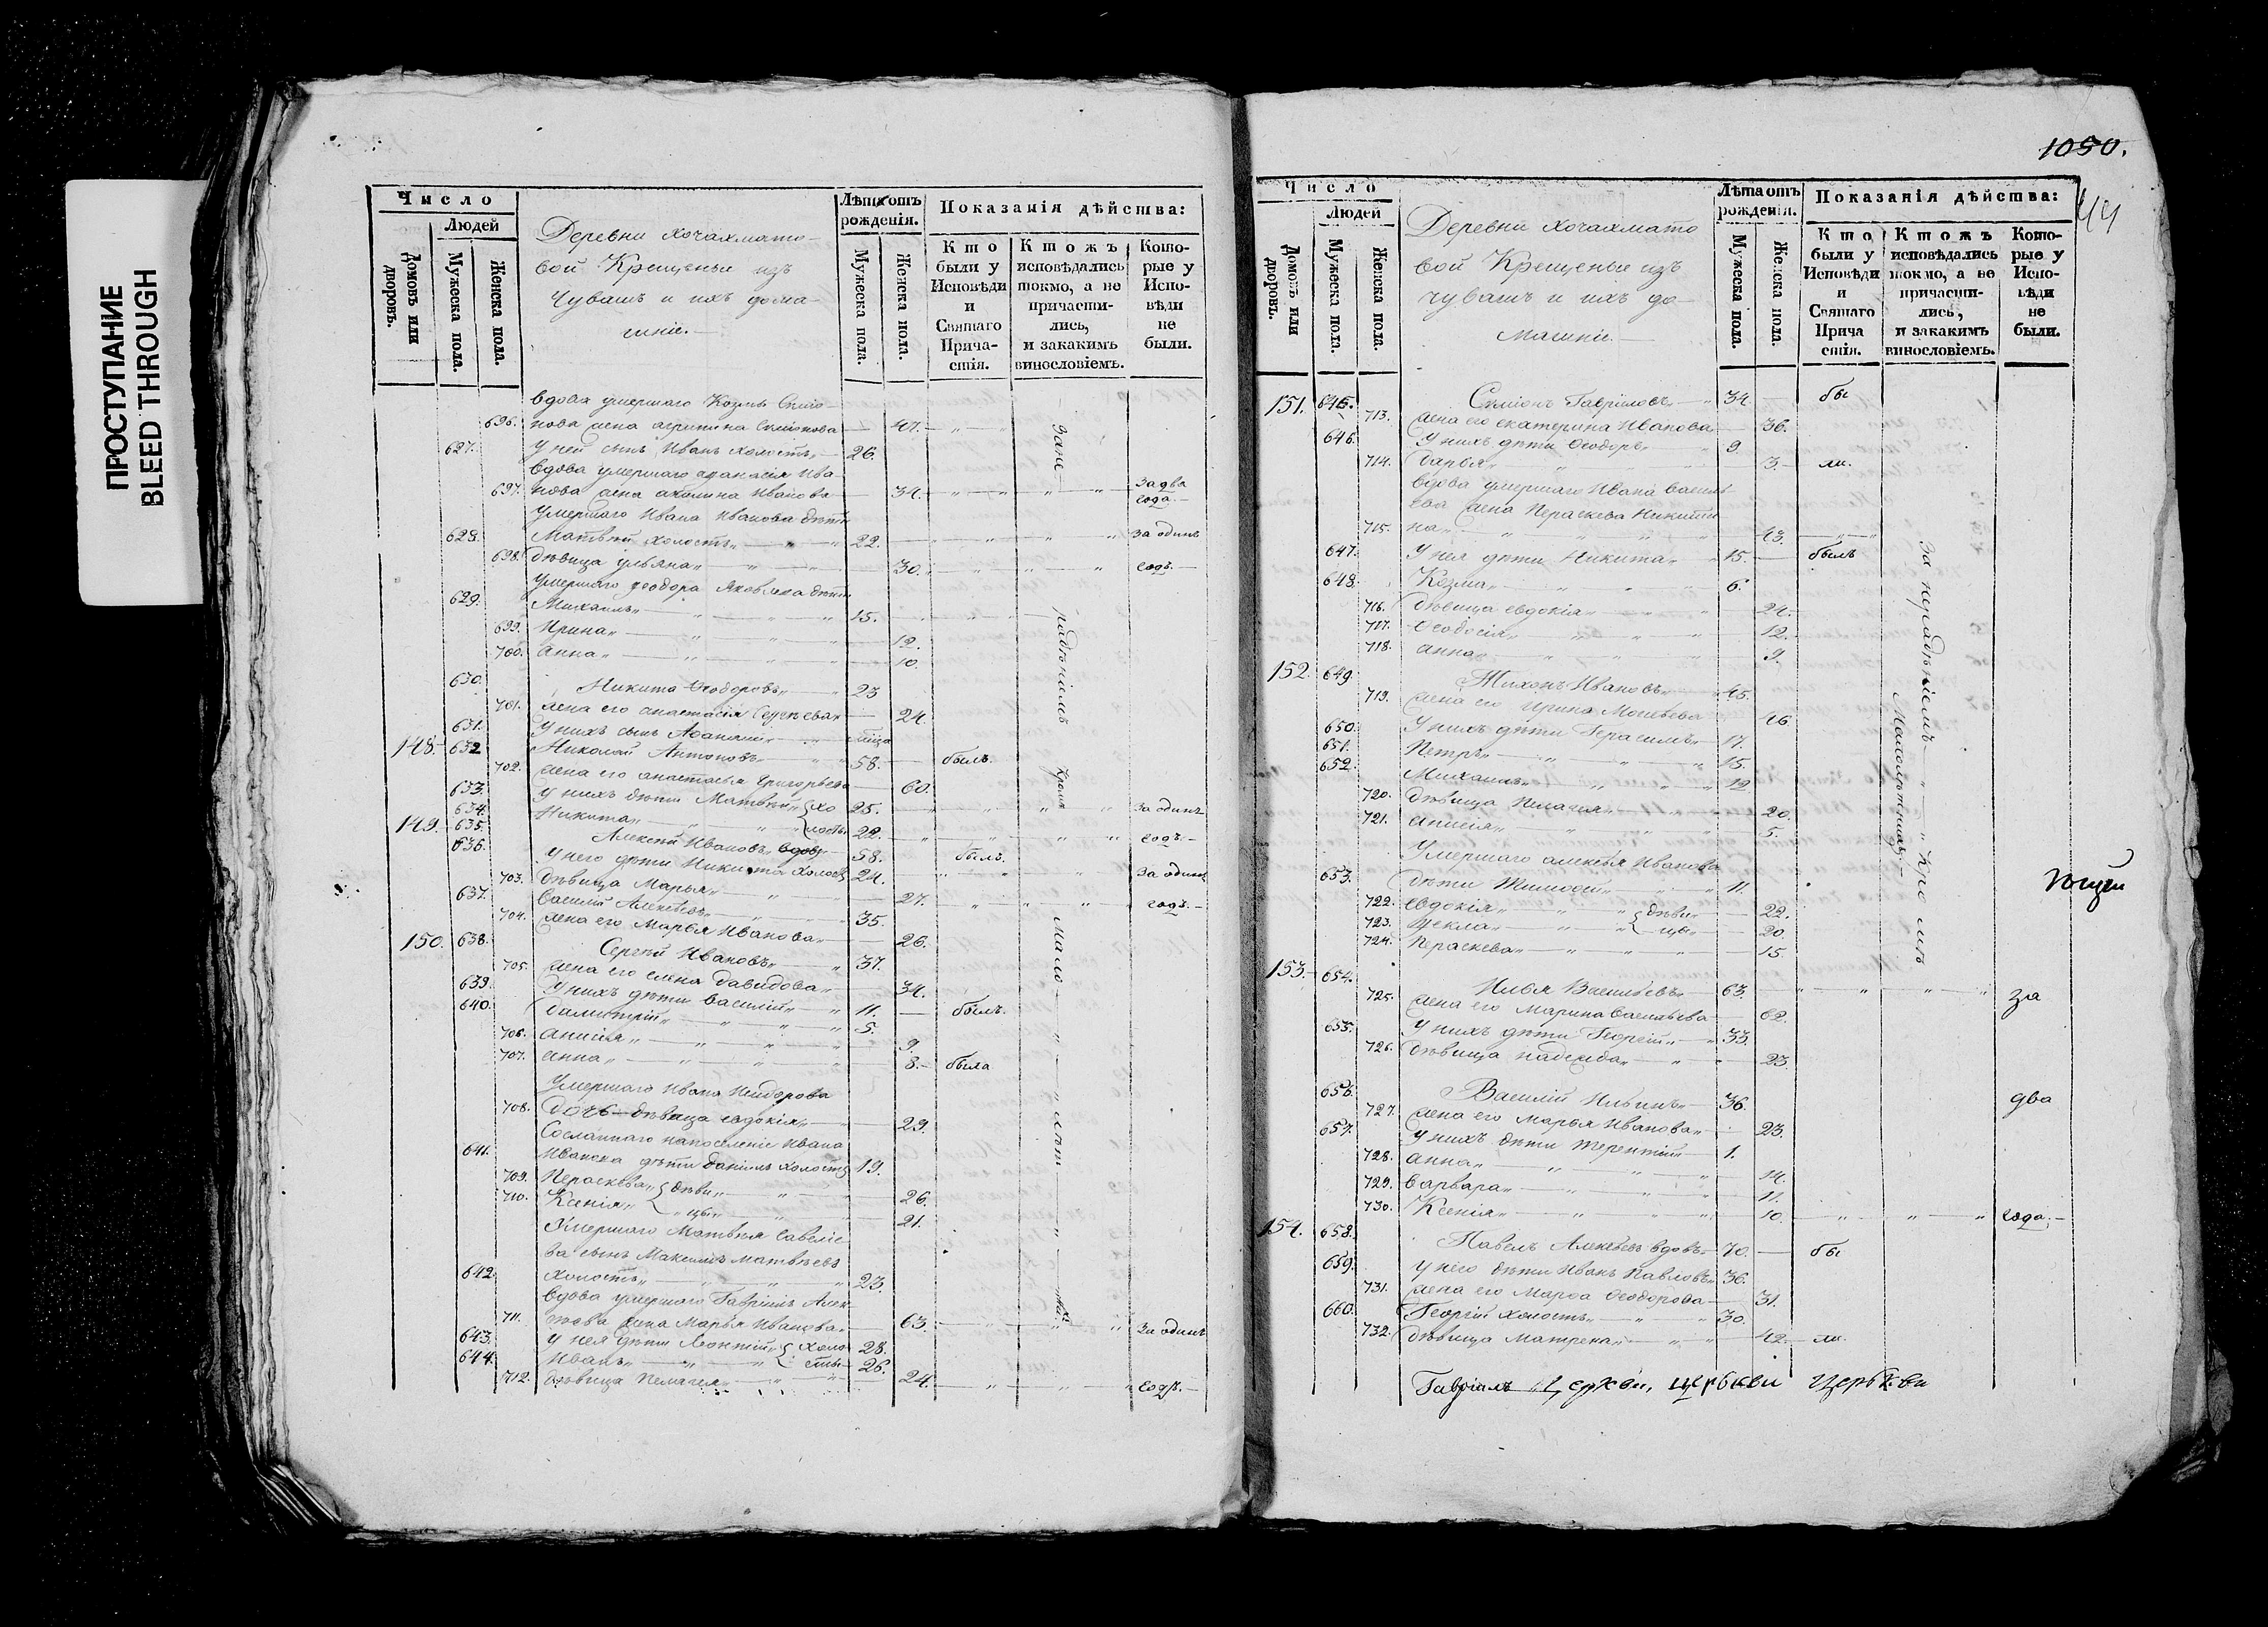 ПРОСТУПАНИЕ
BLEED THROUGH
Число
Людей
Домовъ или дворовъ.
Мужеска пола.
Женска пола.
Деревни Хочахмато-
вой Крещеные изъ
Чувашъ и ихъ дома-
шніе.
Лѣта отъ рожденія.
Мужеска пола.
Женска пола.
Показанія дѣйства:
Кто были у Исповѣди и Святаго Прича-стія.
Ктожъ исповѣдались токмо, а не причасти-лись, и закакимъ винословіемъ.
Кото-рые у Испо-вѣди не были.
вдова умершаго Козмы Симіо-
696. нова жена агрипина Симіонова 47.
627. У ней сынъ Иванъ холостъ 26.
вдова умершаго афанасія Ива-
697. нова жена акилина Иванова 34. За два года.
Умершаго Ивана Иванова дѣти
628. Матвѣй холостъ 22. За одинъ
698. дѣвица ульяна 30. годъ.
Умершаго феодора Яковлева дѣти
629. Михаилъ 15.
699. Ирина 12.
700. Анна 10.
630. Никита Ѳеодоровъ 23
701. жена его анастасія Сергѣева 24.
631. У нихъ сынъ Аѳанасій
148. 632 Николай Антоновъ 58. былъ.
702. жена его анастасья Григорьева 60.
633. У нихъ дѣти Матвѣй хо 25. За одинъ
634. Никита лосты 22. годъ.
149. 635. Алексѣй Ивановъ вдовъ 58. былъ.
636. У него дѣти Никита холостъ 24. За одинъ
703. дѣвица Марья 27. годъ.
637. Василій Алексѣевъ 35.
704. жена его Марья Иванова 26.
150. 638. Сергѣй Ивановъ 37.
705. жена его елена давидова 34.
639. У нихъ дѣти василій 11. былъ.
640. димитрій 5.
706. Анисія 9.
707. Анна 8. была
Умершаго Ивана Исидорова
708. дочь дѣвица евдокія 29.
Сосланнаго напоселеніе Ивана
641. Иванова дѣти даніилъ холостъ 19.
709. Параскева дѣви 26.
710. Ксенія цы 21.
Умершаго Матвѣя Савелье
ва сынъ Максимъ Матвѣевъ
642. холостъ 23.
вдова умершаго Гавріила Алек-
711. сѣева жена Марья Иванова 63. За одинъ
643. У нея дѣти Леонтій холо 28.
644. Иванъ сты 26.
712. дѣвица Пелагея 24. годъ.
1050.
44
Число
Людей
Домовъ или дворовъ.
Мужеска пола.
Женска пола.
Деревни Хочахмато
вой Крещеные изъ
чувашъ и ихъ до-
машніе.
Лѣта отъ рожденія.
Мужеска пола.
Женска пола.
Показанія дѣйства:
Кто были у Исповѣди и Святаго Прича стія.
Ктожъ исповѣдались токмо, а не причасти-лись, и закакимъ винословіемъ.
Кото-рые у Испо-вѣди не были.
151. 645. Симіонъ Гавріиловъ 34. бы
713. жена его екатерина Иванова 36.
646. У нихъ дѣти Ѳеодоръ 9.
714. дарья 3. ли.
вдова умершаго Ивана василь
ева жена Параскева Никити
715. на 43.
647. У нея дѣти Никита 15. былъ
648. Козма 6.
716. дѣвица евдокія 24.
717. Ѳеодосія 12.
718. анна 9.
за нерадѣніемъ
Малолѣтныхъ
Кромѣ
152. 649. Тихонъ Ивановъ 45.
719. жена его Ирина Моисѣева 46.
650. У нихъ дѣти Герасимъ 17.
651. Петръ 15.
652. Михаилъ 12.
720. дѣвица Пелагея 20.
721. анисія 5.
Умершаго алексѣя Иванова
653. дѣти Тимофей 11.
722. евдокія дѣви 22.
723. Ѳекла цы 20.
724. Параскева 15.
153. 654. Илья Васильевъ 63. за
725. жена его Марина васильева 62.
655. У нихъ дѣти Георгій 33.
726. дѣвица надежда 23.
656. Василій Ильинъ 36. два
727. жена его марья Иванова 23.
657. У нихъ дѣти терентій 1.
728. анна 14.
729. варвара 11.
730. Ксенія 10. года.
154. 658. Павелъ Алексѣевъ вдовъ 70. бы
659. у него дѣти Иванъ Павловъ 36.
731. жена его Марѳа Ѳеодорова 31.
660. Георгій холостъ 30.
732. дѣвица матрена 42. ли.
Гавріилъ Церкви, церькви Церькви